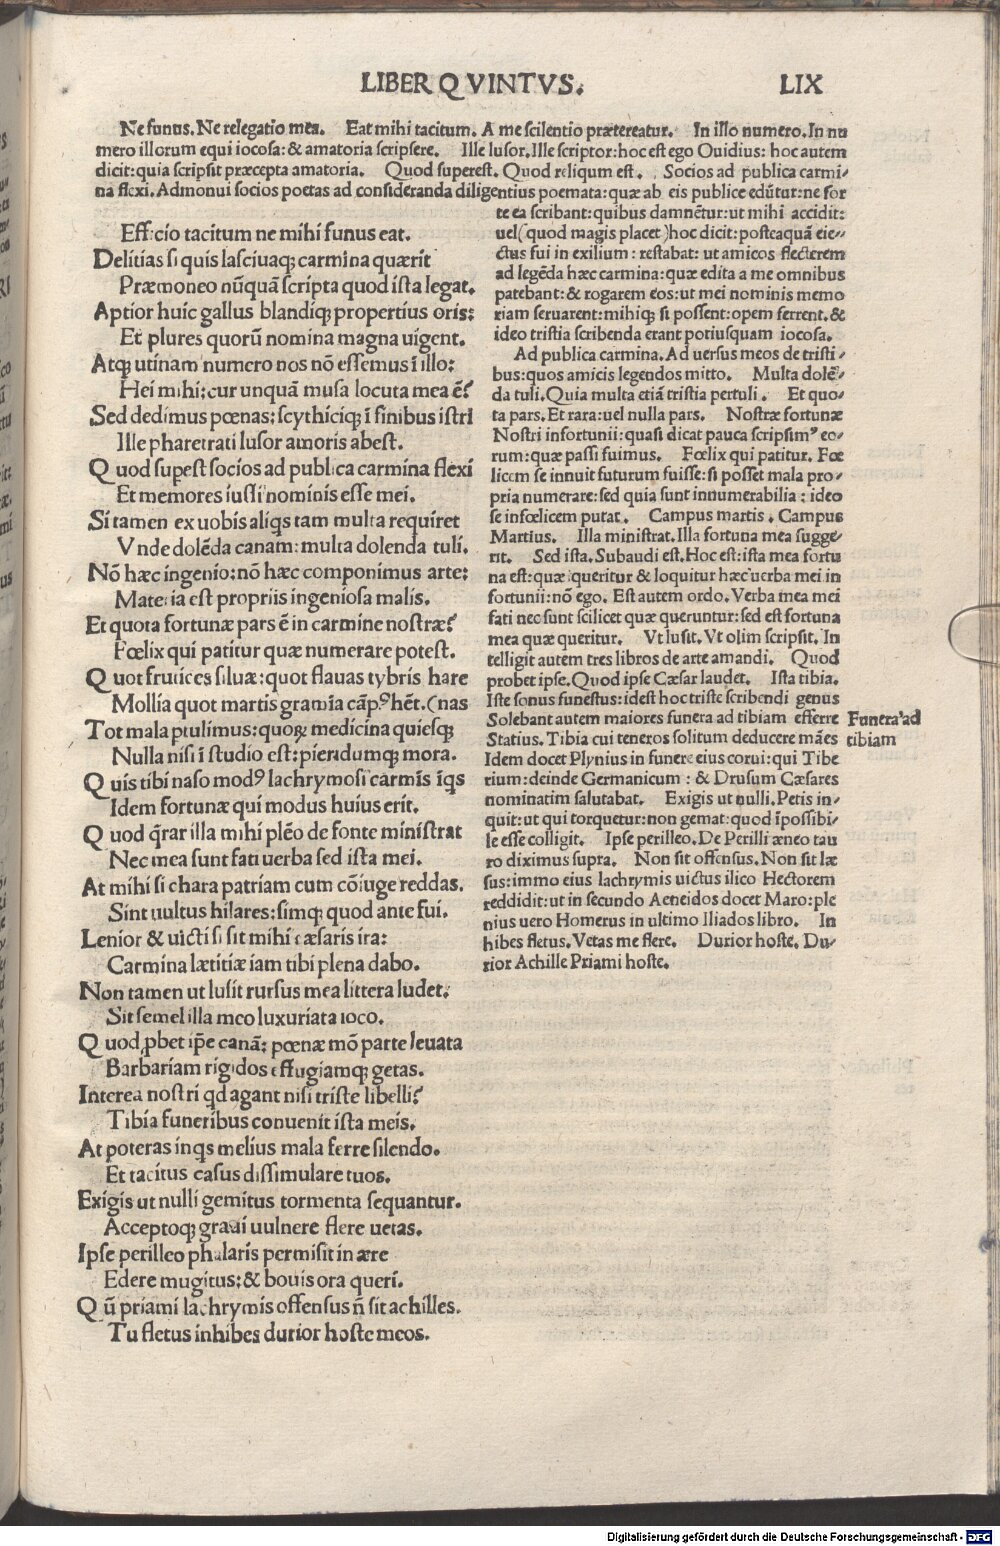 LIBER QVINTVS. LIX
Ne funus. Ne relegatio mea. Eat mihi tacitum. A me scilentio prætereatur. In illo numero. In nu
mero illorum equi iocosa: & amatoria scripsere. Ille lusor. Ille scriptor: hoc est ego Ouidius: hoc autem
dicit: quia scripsit præcepta amatoria. Quod superest. Quod reliqum est. Socios ad publica carmi-
na flexi. Admonui socios poetas ad consideranda diligentius poemata: quæ ab eis publice edūtur: ne for
te ea scribant: quibus damnētur: ut mihi accidit:
uel (quod magis placet) hoc dicit: posteaquā eie-
ctus fui in exilium: restabat: ut amicos flecterem
ad legēda hæc carmina: quæ edita a me omnibus
patebant: & rogarem eos: ut mei nominis memo
riam seruarent: mihiq; si possent: opem ferrent. &
ideo tristia scribenda erant potiusquam iocosa.
Ad publica carmina. Ad uersus meos de tristi-
bus: quos amicis legendos mitto. Multa dolē-
da tuli. Quia multa etiā tristia pertuli. Et quo-
ta pars. Et rara: uel nulla pars. Nostræ fortunæ
Nostri infortunii: quasi dicat pauca scripsimꝰ eo-
rum: quæ passi fuimus. Fœlix qui patitur. Fœ
licem se innuit futurum fuisse: si posset mala pro-
pria numerare: sed quia sunt innumerabilia: ideo
se infœlicem putat. Campus martis. Campus
Martius. Illa ministrat. Illa fortuna mea sugge-
rit. Sed ista. Subaudi est. Hoc est: ista mea fortu
na est: quæ queritur & loquitur hæc uerba mei in
fortunii: nō ego. Est autem ordo. Verba mea mei
fati nec sunt scilicet quæ queruntur: sed est fortuna
mea quæ queritur. Vt lusit. Vt olim scripsit. In
telligit autem tres libros de arte amandi. Quod
probet ipse. Quod ipse Cæsar laudet. Ista tibia.
Iste sonus funestus: idest hoc triste scribendi genus
Solebant autem maiores funera ad tibiam efferre
Statius. Tibia cui teneros solitum deducere mães
Idem docet Plynius in funere eius corui: qui Tibe
rium: deinde Germanicum: & Drusum Cæsares
nominatim salutabat. Exigis ut nulli. Petis in-
quit: ut qui torquetur: non gemat: quod īpossibi-
le esse colligit. Ipse perilleo. De Perilli æneo tau
ro diximus supra. Non sit offensus. Non sit læ
sus: immo eius lachrymis uictus ilico Hectorem
reddidit: ut in secundo Aeneidos docet Maro: ple
nius uero Homerus in ultimo Iliados libro. In
hibes fletus. Vetas me flere. Durior hoste. Du-
rior Achille Priami hoste.
Funera ad
tibiam
Efficio tacitum ne mihi funus eat.
Delitias si quis lasciuaq; carmina quærit
Præmoneo nūquā scripta quod ista legat.
Aptior huic gallus blandiq; propertius oris:
Et plures quorū nomina magna uigent.
Atq; utinam numero nos nō essemus ī illo:
Hei mihi: cur unquā musa locuta mea ē?
Sed dedimus pœnas: scythiciq; ī finibus istri
Ille pharetrati lusor amoris abest.
Quod supest socios ad publica carmina flexi
Et memores iussi nominis esse mei.
Si tamen ex uobis aliqs tam multa requiret
Vnde dolēda canam: multa dolenda tuli.
Nō hæc ingenio: nō hæc componimus arte:
Materia est propriis ingeniosa malis.
Et quota fortunæ pars ē in carmine nostræ?
Fœlix qui patitur quæ numerare potest.
Quot frutices siluæ: quot flauas tybris hare
Mollia quot martis gramīa cāpꝰ hēt. (nas
Tot mala ptulimus: quoꝝ medicina quiesq;
Nulla nisi ī studio est: pieridumq; mora.
Quis tibi naso modꝰ lachrymosi carmīs īqs
Idem fortunæ qui modus huius erit.
Quod q̄rar illa mihi plēo de fonte ministrat
Nec mea sunt fati uerba sed ista mei.
At mihi si chara patriam cum cōiuge reddas.
Sint uultus hilares: simq; quod ante fui.
Lenior & uicti si sit mihi cæsaris ira:
Carmina lætitiæ iam tibi plena dabo.
Non tamen ut lusit rursus mea littera ludet:
Sit semel illa meo luxuriata ioco.
Quod ꝓbet ip̄e canā: pœnæ mō parte leuata
Barbariam rigidos effugiamq; getas.
Interea nostri qd agant nisi triste libelli?
Tibia funeribus conuenit ista meis.
At poteras inqs melius mala ferre silendo.
Et tacitus casus dissimulare tuos.
Exigis ut nulli gemitus tormenta sequantur.
Acceptoq; graui uulnere flere uetas.
Ipse perilleo phalaris permisit in ære
Edere mugitus: & bouis ora queri.
Qū priami lachrymis offensus n̄ sit achilles.
Tu fletus inhibes durior hoste meos.
Digitalisierung gefördert durch die Deutsche Forschungsgemeinschaft - DFG